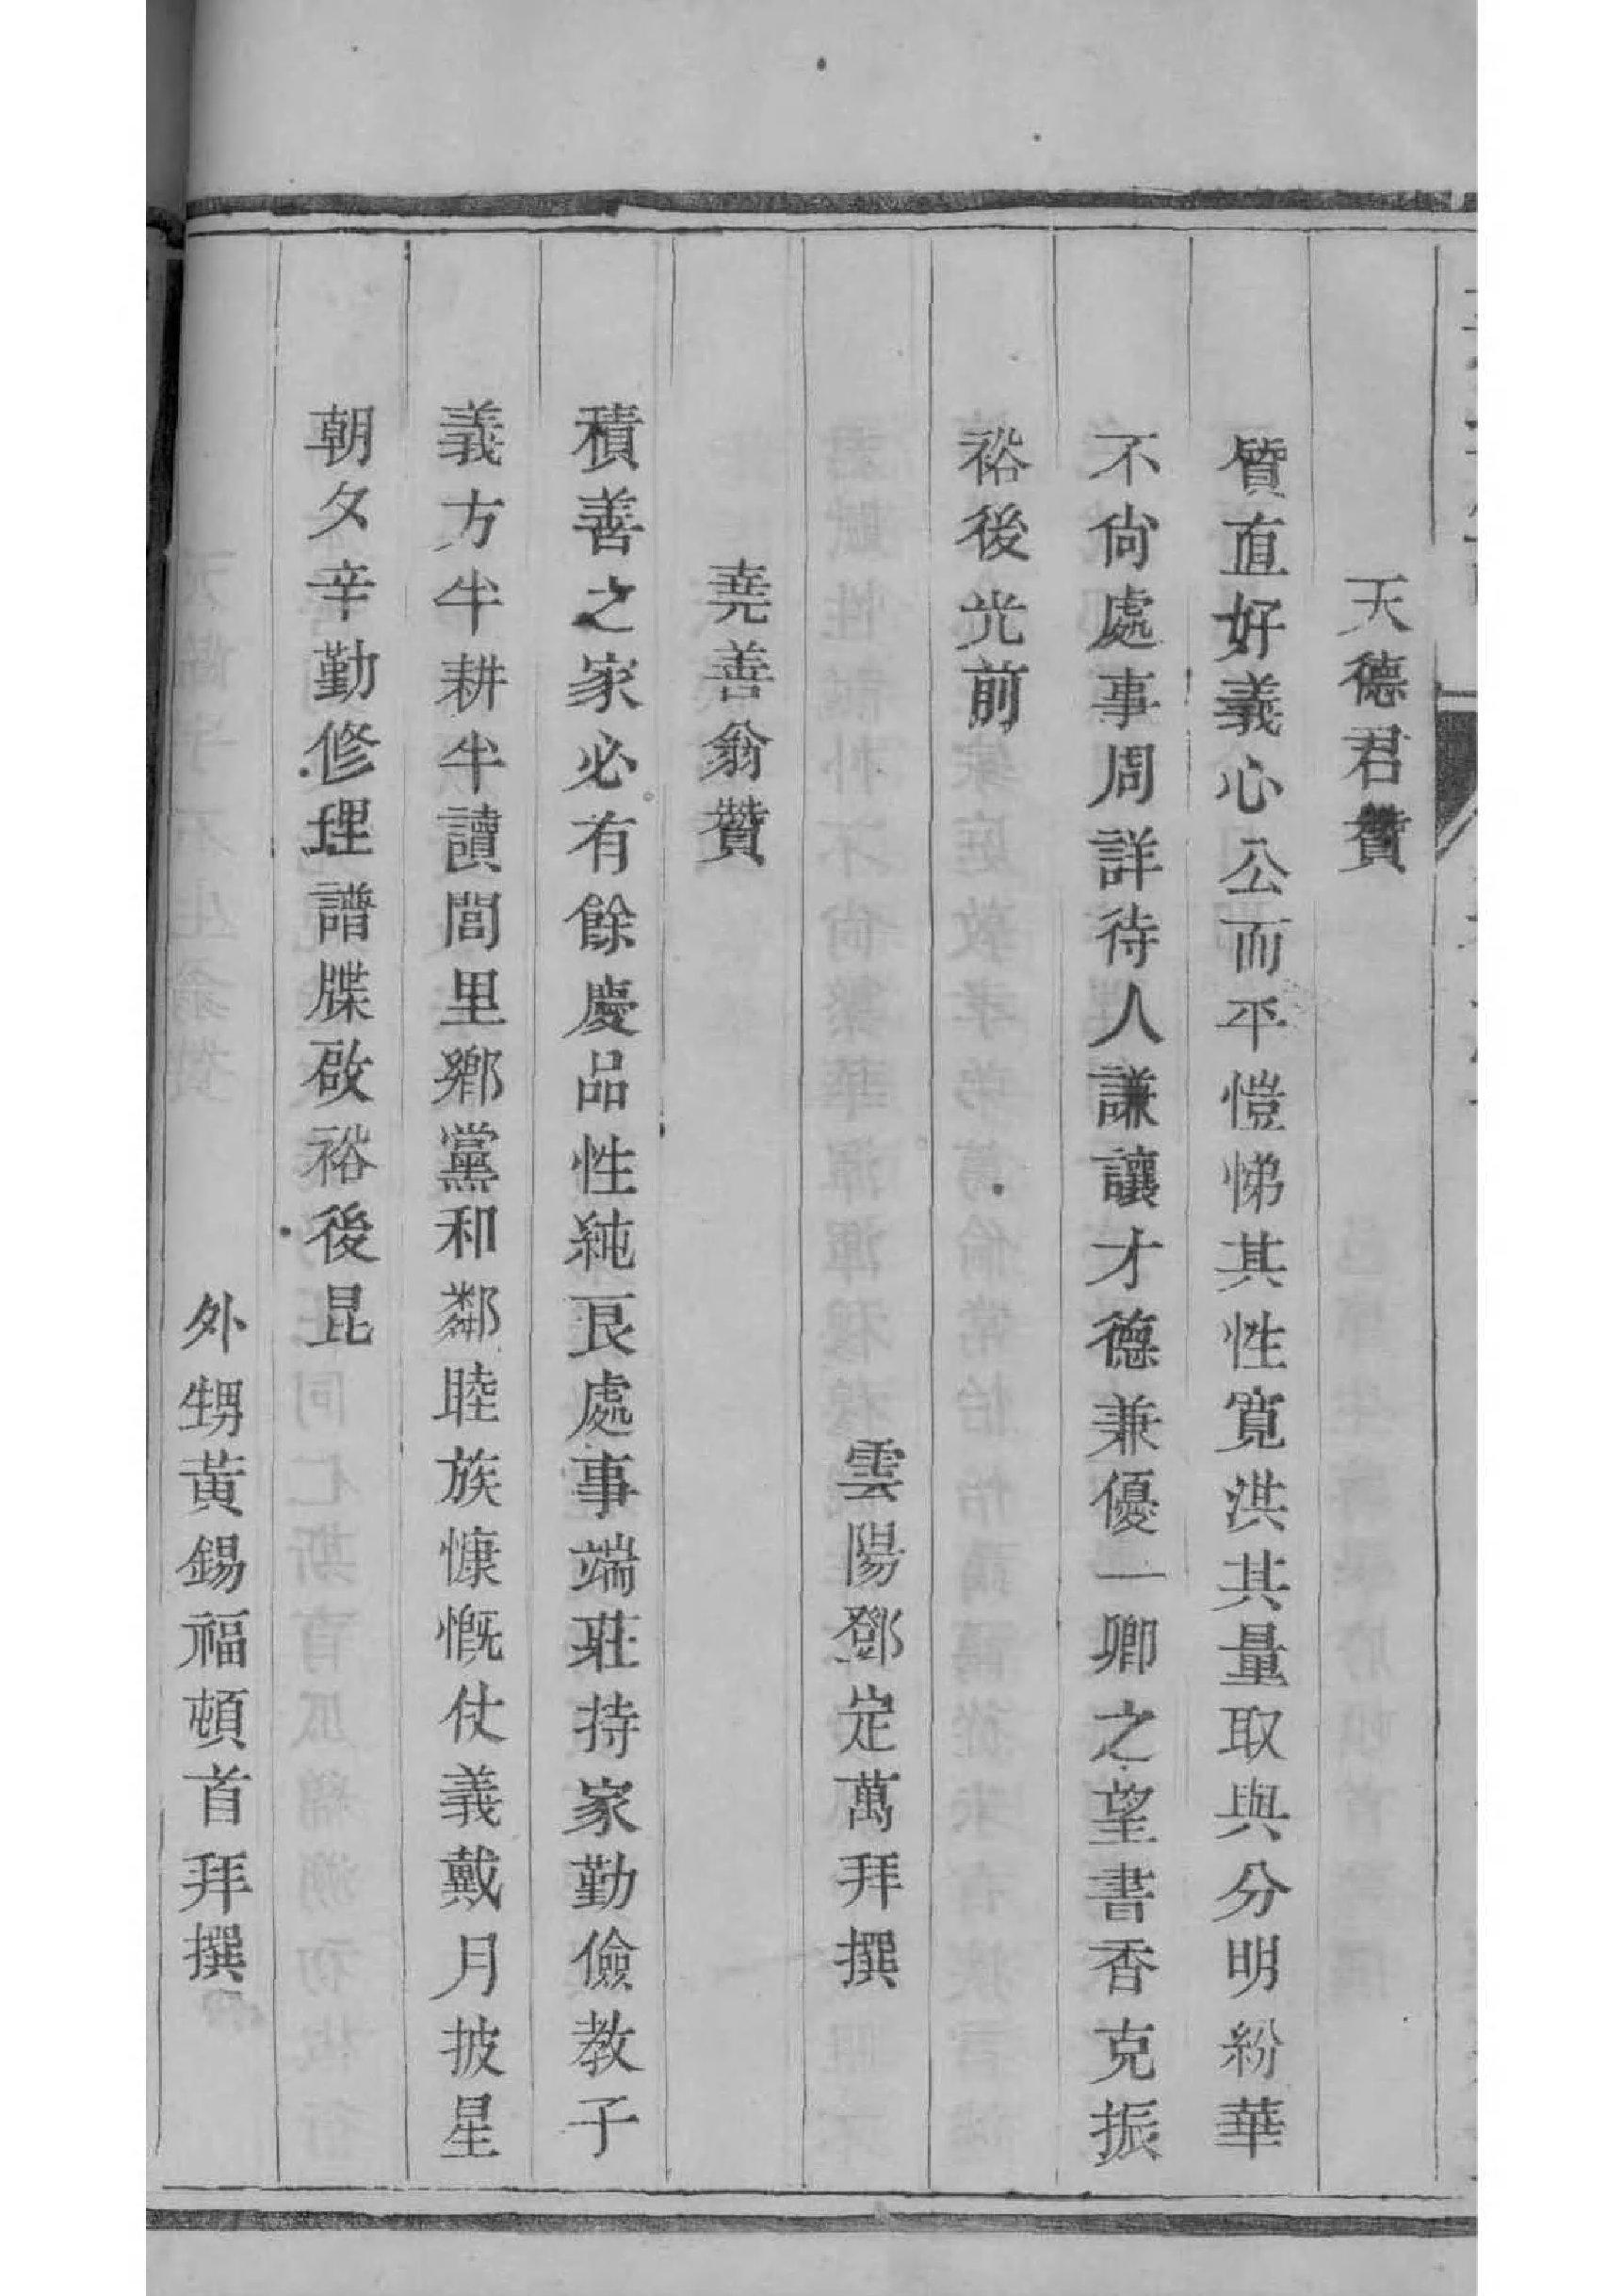 天德君贊
質直好義心公而平愷悌其性寬洪其量取與分明紛華
不尙處事周詳待人謙讓才德兼優一鄉之望書香克振
裕後光前
雲陽鄧定萬拜撰
堯善翁贊
積善之家必有餘慶品性純良處事端莊持家勤儉教子
義方半耕半讀閭里鄉黨和鄰睦族慷慨仗義戴月披星
朝夕辛勤修理譜牒啟裕後昆
外甥黃錫福頓首拜撰